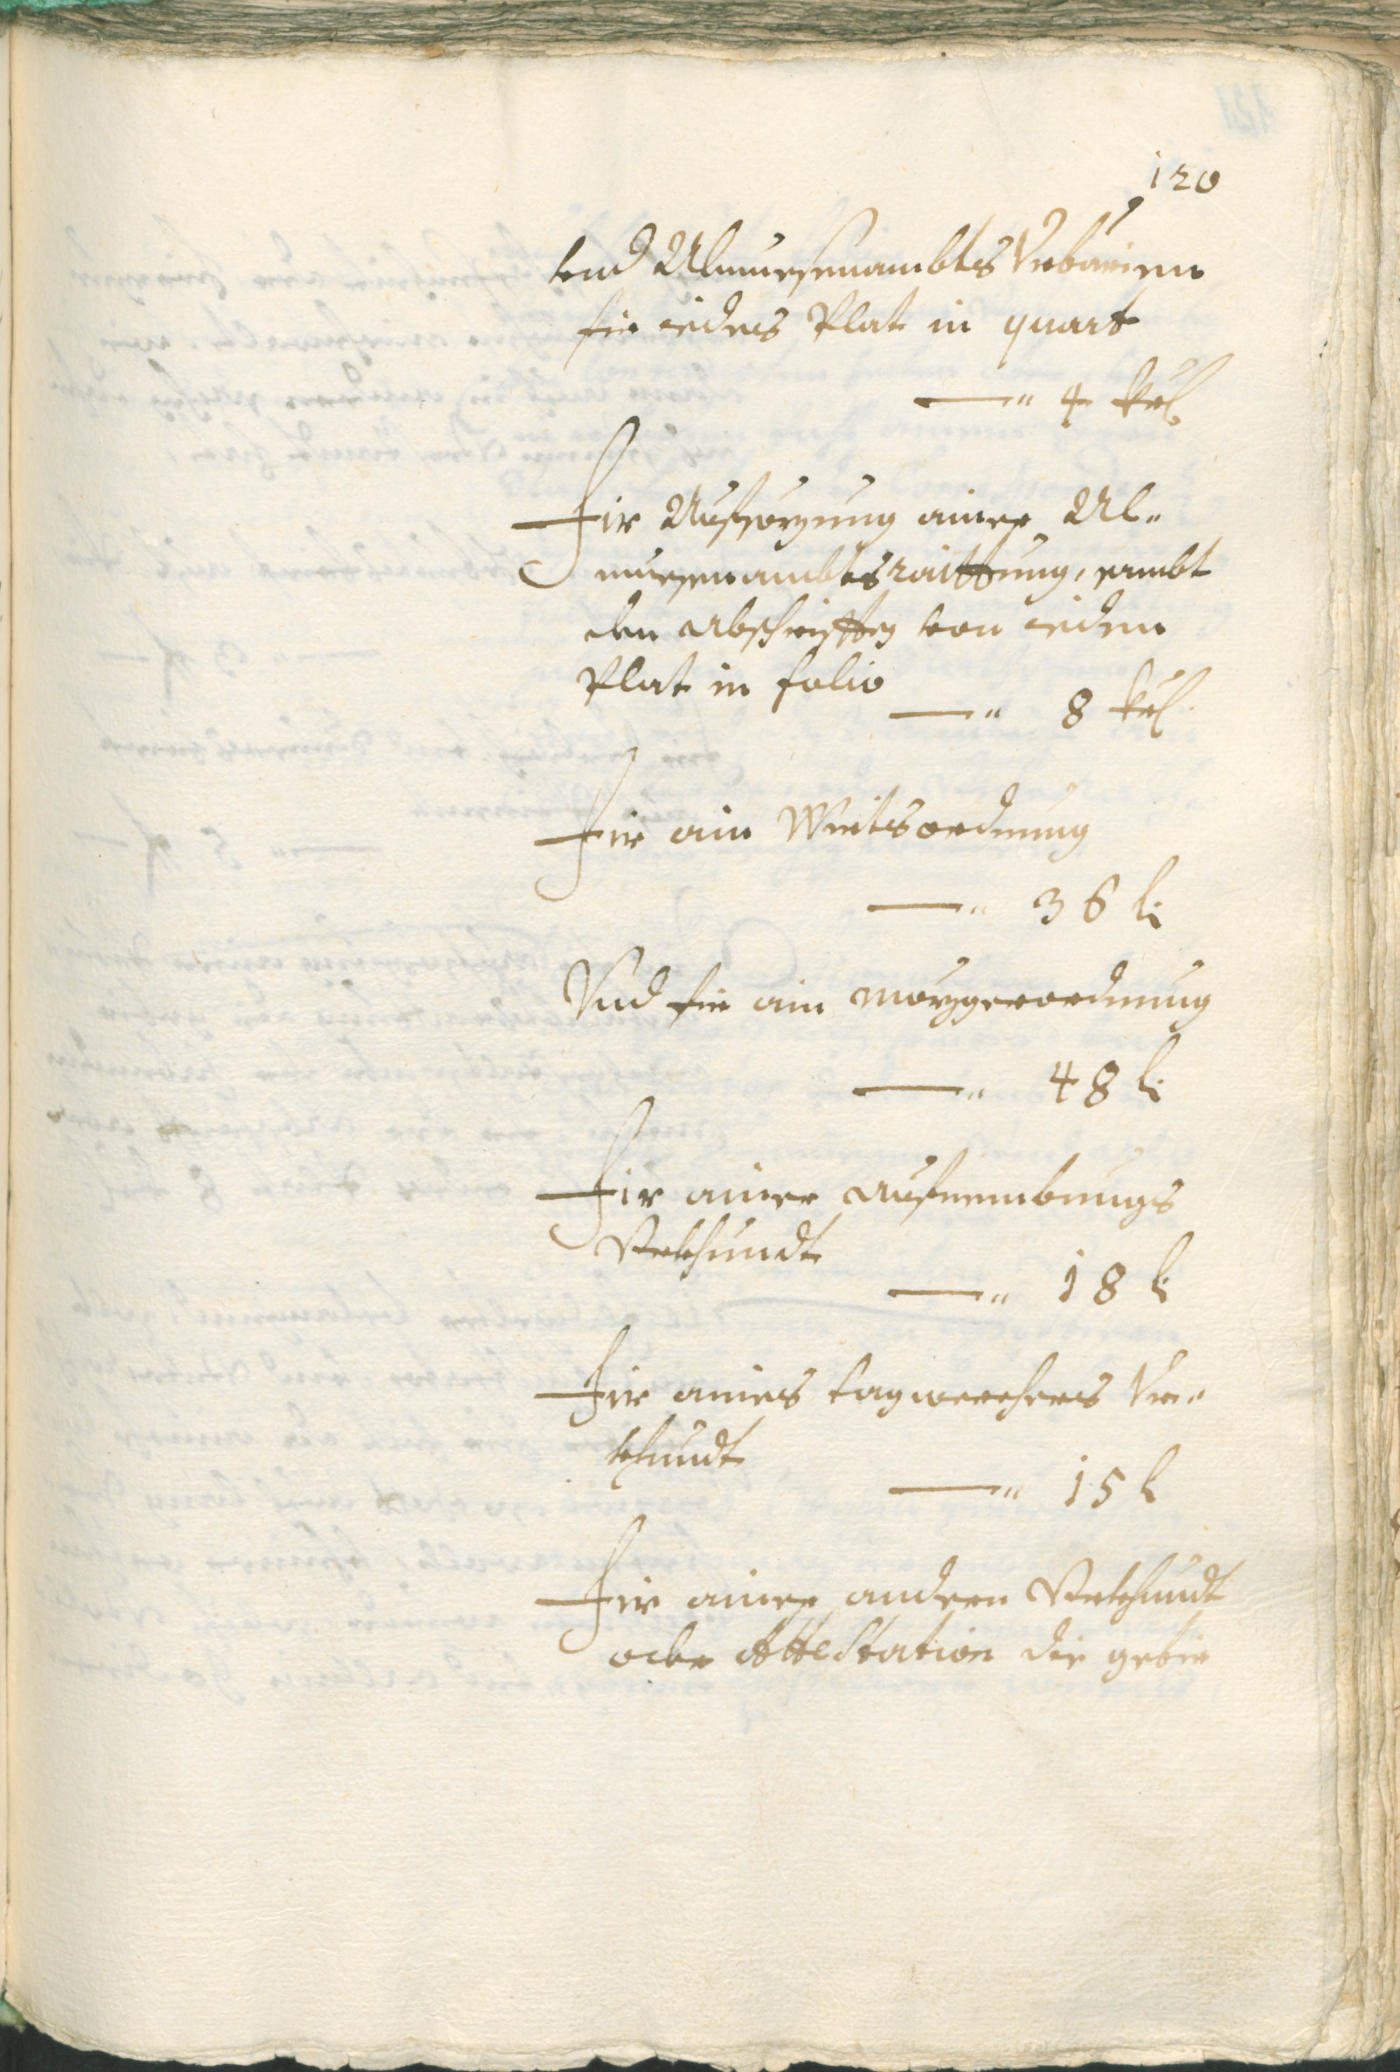 120
vnd Almuesenambts Vrbarien
für iedes Plat in quart
— " 4 kr.
Für Aufsözung ainer Al-
muesenambtsraittung, sambt
den Abschrifften von ieden
Plat in folio
— " 8 kr.
Für ain Wirtsordnung
— " 36 k:
Vnd für ain mözgerordnung
— " 48 k:
Für ainer aufnembungs
Vrkhundt
— " 18 k:
Für aines tagwerchers Vr-
khundt
— " 15 k
Für ainer andern Vrkhundt
oder Attestation die gebür